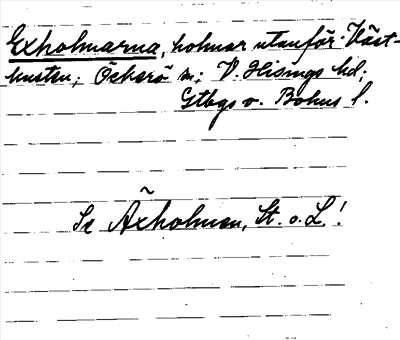 Exholmarna, holmar utanför Väst-
kusten; Öckerö sn; V. Hisings hd;
Gtbgs o. Bohus l.
Se Äxholmen, St. o. L!